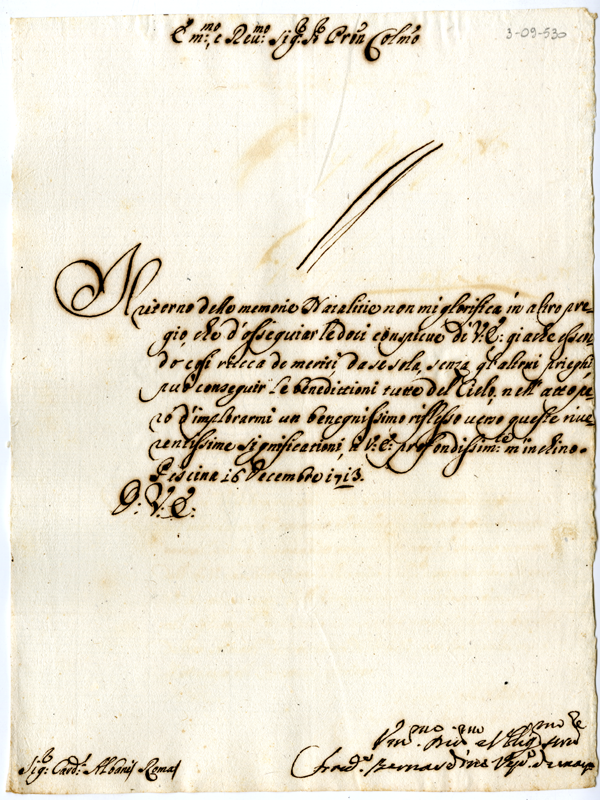 E.mo e Reu.mo Sig.r Pron Colmo
3-09-530
Nuterno delle memorie Natalitie non mi glorifica in altro pre-
gio, che d'ossequiar le doti conspicue di V: E: giache essen-
do così ricca de meriti, da se sola, senza gl'altrui prieghi
può conseguir le benedittioni tutte del Cielo, nell'atto pe-
rò d'implorarmi un benegnissimo riflesso verso queste riue-
rentissime significationi, à V: E: profondissim.te m'inchino.
Pescina 16 Decembre 1713.
D: V: E:
Vm.mo Diu.mo et Oblig.mo Serv.re
Bernardino
Sig.r Card.l Albani Roma